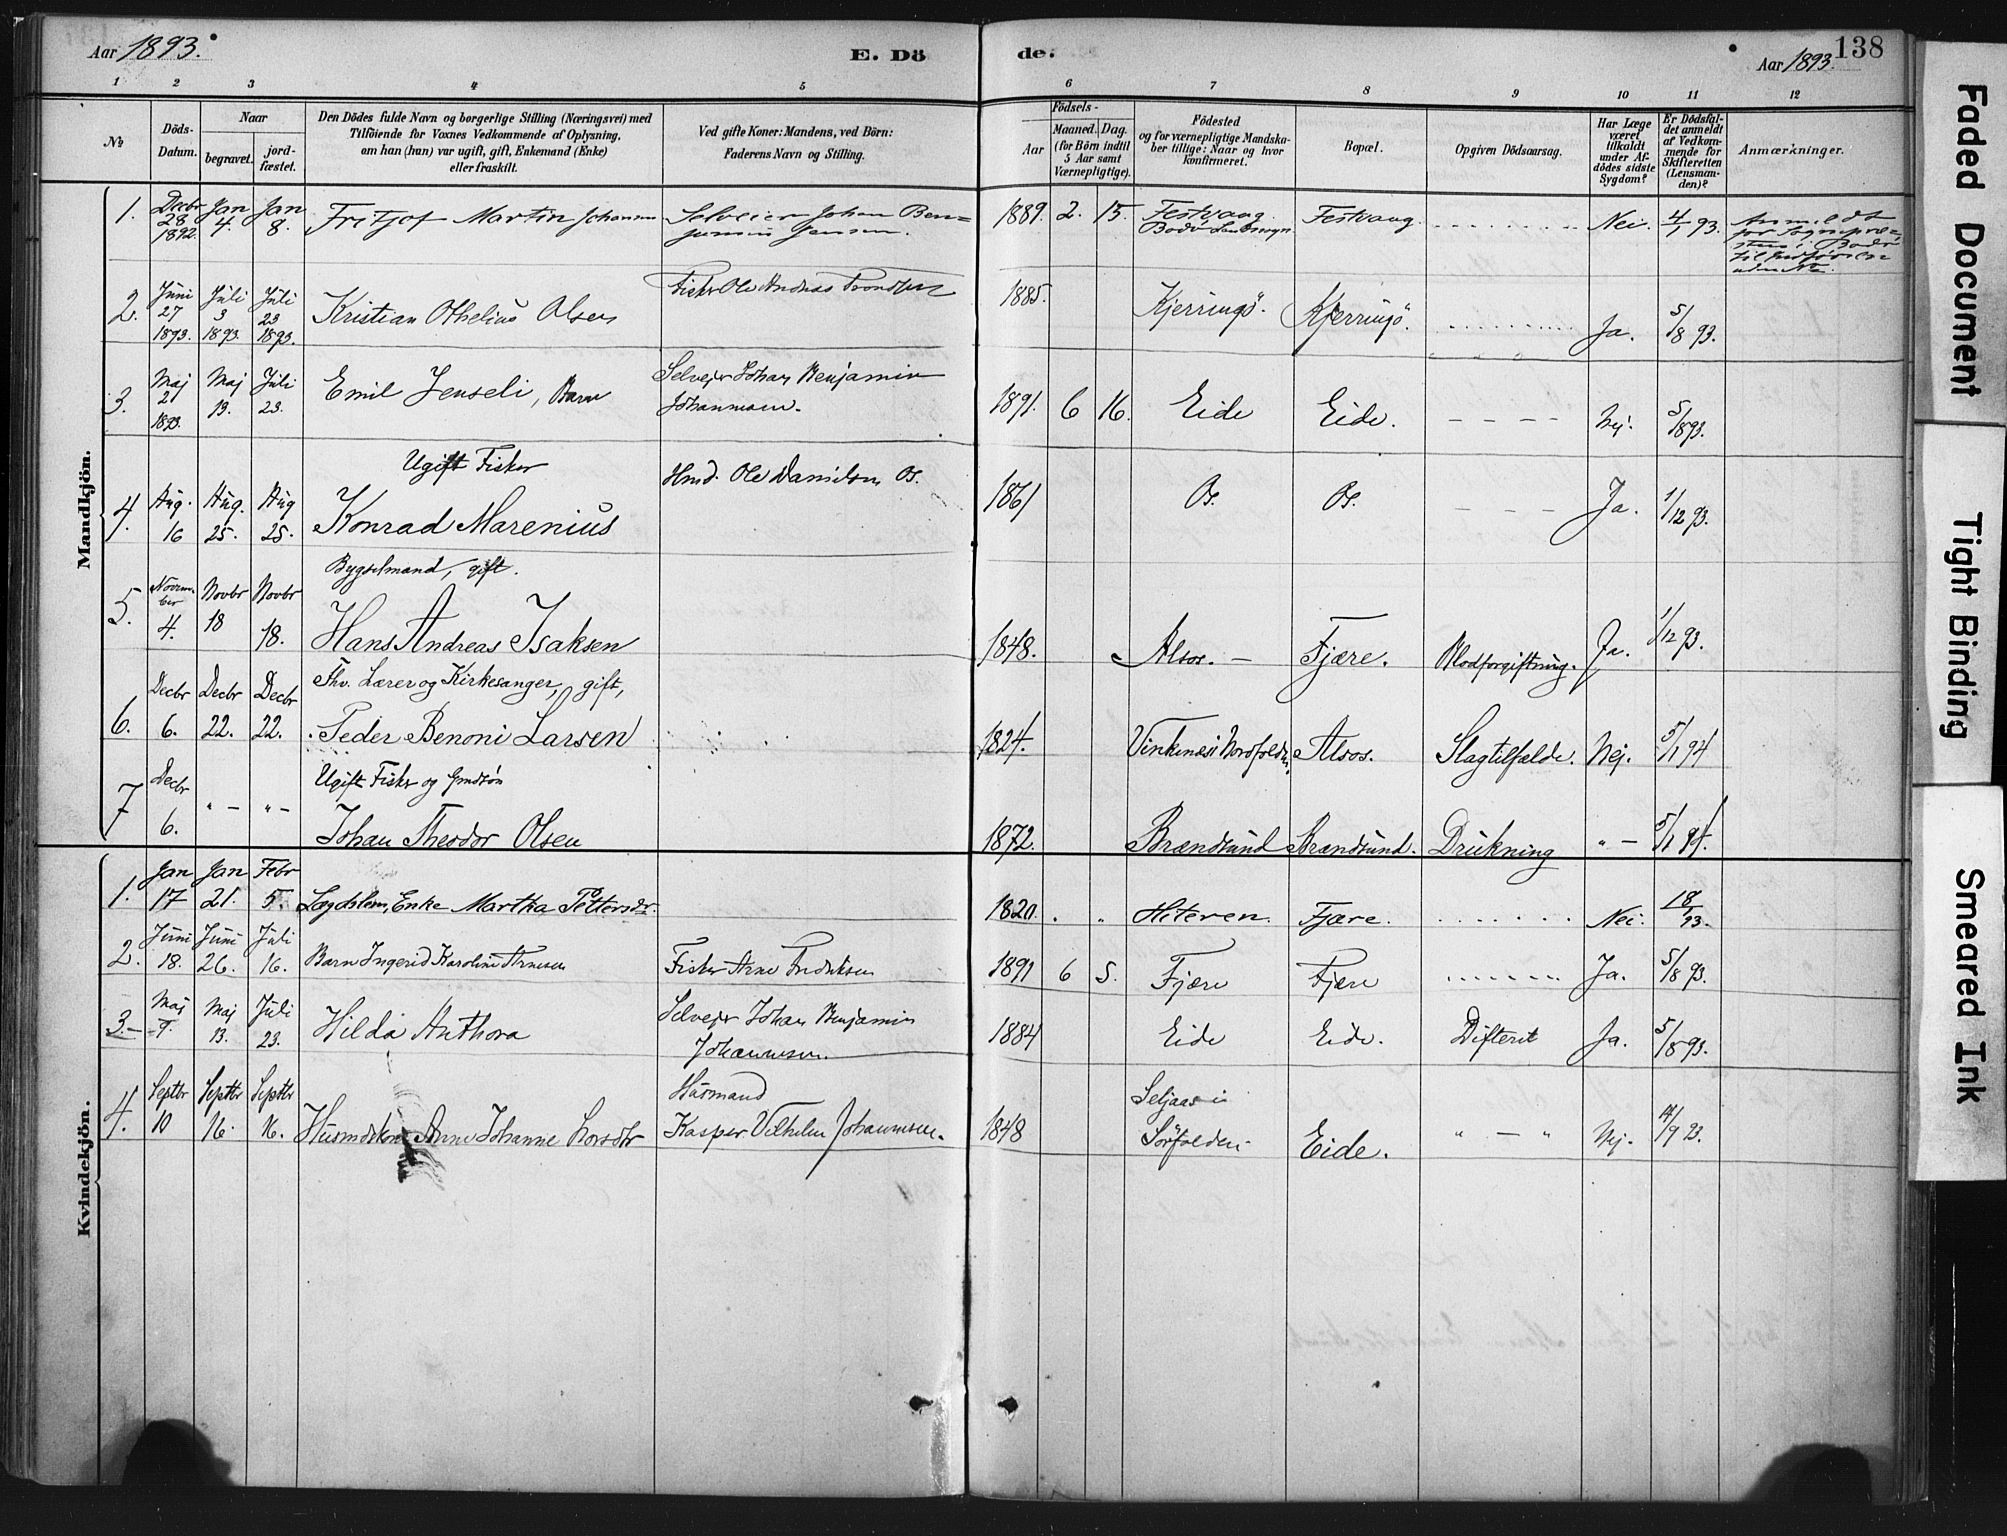 Aar 1893.
E. Dö
de.
Aar 1893.
138
1 2 3 4 5 6 7 8 9 10 11 12
№
Döds-
Datum.
Naar
begravet.
jord-
fæstet.
Den Dödes fulde Navn og borgerlige Stilling (Næringsvei) med
Tilföiende for Voxnes Vedkommende af Oplysning,
om han (hun) var ugift, gift, Enkemand (Enke)
eller fraskilt.
Ved gifte Koner: Mandens, ved Börn:
Faderens Navn og Stilling.
Födsels-
Aar
Maaned.
Dag.
(for Börn indtil
5 Aar samt
Værnepligtige).
Födested
og for værnepligtige Mandska-
ber tillige: Naar og hvor
konfirmeret.
Bopæl.
Opgiven Dödsaarsag.
Har Læge
været
tilkaldt
under Af-
dödes sidste
Sygdom?
Er Dödsfal-
det anmeldt
af Vedkom-
mende for
Skifteretten
(Lensman-
den)?
Anmærkninger.
Mandkjön.
1. Decbr 28 1892. Jan 4. Jan 8. Fritjof Martin Johansen Selveier Johan Ben=
jamin Jensen. 1889. 2. 15. Festvaag
Bodø Landsogn Festvaag. Nei. 4/1 93. Anmeldt
for Sognepræ=
sten i Bodø
2. Juni 27 1893. Juli 3 1893. Juli 23 1893. Kristian Othelius Olsen Fisker Ole Andreas Trondsen 1885. Kjerringö. Kjerringö. Ja. 5/8 93.
3. Maj 2 1893. Maj 13. Juli 23. Emil Jenseli, Barn Selvejer Johan Benjamin
Johannesen. 1891. 6 16. Eide Eide. Nej. 5/8 93.
Ugift Fisker
4. Aug. 16 Aug. 25. Aug 25. Konrad Marenius Hmd. Ole Danielsen Os. 1861 Os. Os. Ja. 1/12 93.
Bygselmand, gift.
5. Novem-
ber 4. Novbr 18 Novbr 18. Hans Andreas Isaksen 1848. Alsos. Fjære. Blodforgiftning. Ja. 1/12 93.
Fhv. Lærer og Kirkesanger, gift,
6. Decbr 6. Decbr 22. Decbr 22. Peder Benoni Larsen 1824. Vinkenæs i Nordfolden. Alsos. Slagtilfælde. Nej. 5/1 94
Ugift Fisker og
7 Decbr 6. " - " - Johan Theodor Olsen 1872. Brændsund Brændsund. Drukning " - 5/1 94.
Kvindekjön.
1. Jan 17 Jan 21. Febr 5. Lægdslem, Enke Martha Pettersdr. 1820. Hiteren. Fjære. Nei. 18/1 93.
2. Juni 18. Juni 26. Juli 16. Barn Ingerid Karoline Arnesen Fisker Arne Fredriksen 1891 6 5. Fjære Fjære Ja. 5/8 93.
3. Maj 9. Maj 13. Juli 23. Hilda Anthora Selvejer Johan Benjamin
Johannesen. 1884 Eide Eide. Difterit Ja. 5/8 93.
4. Septbr 10 Septbr 16. Septbr 16. Husmdskone Anne Johanne Larsdtr Husmand
Kasper Vilhelm Johannesen. 1848 Seljaas i
Sörfolden Eide. " - " Nej. 14/9 93.
Faded Document
Tight Binding
Smeared Ink